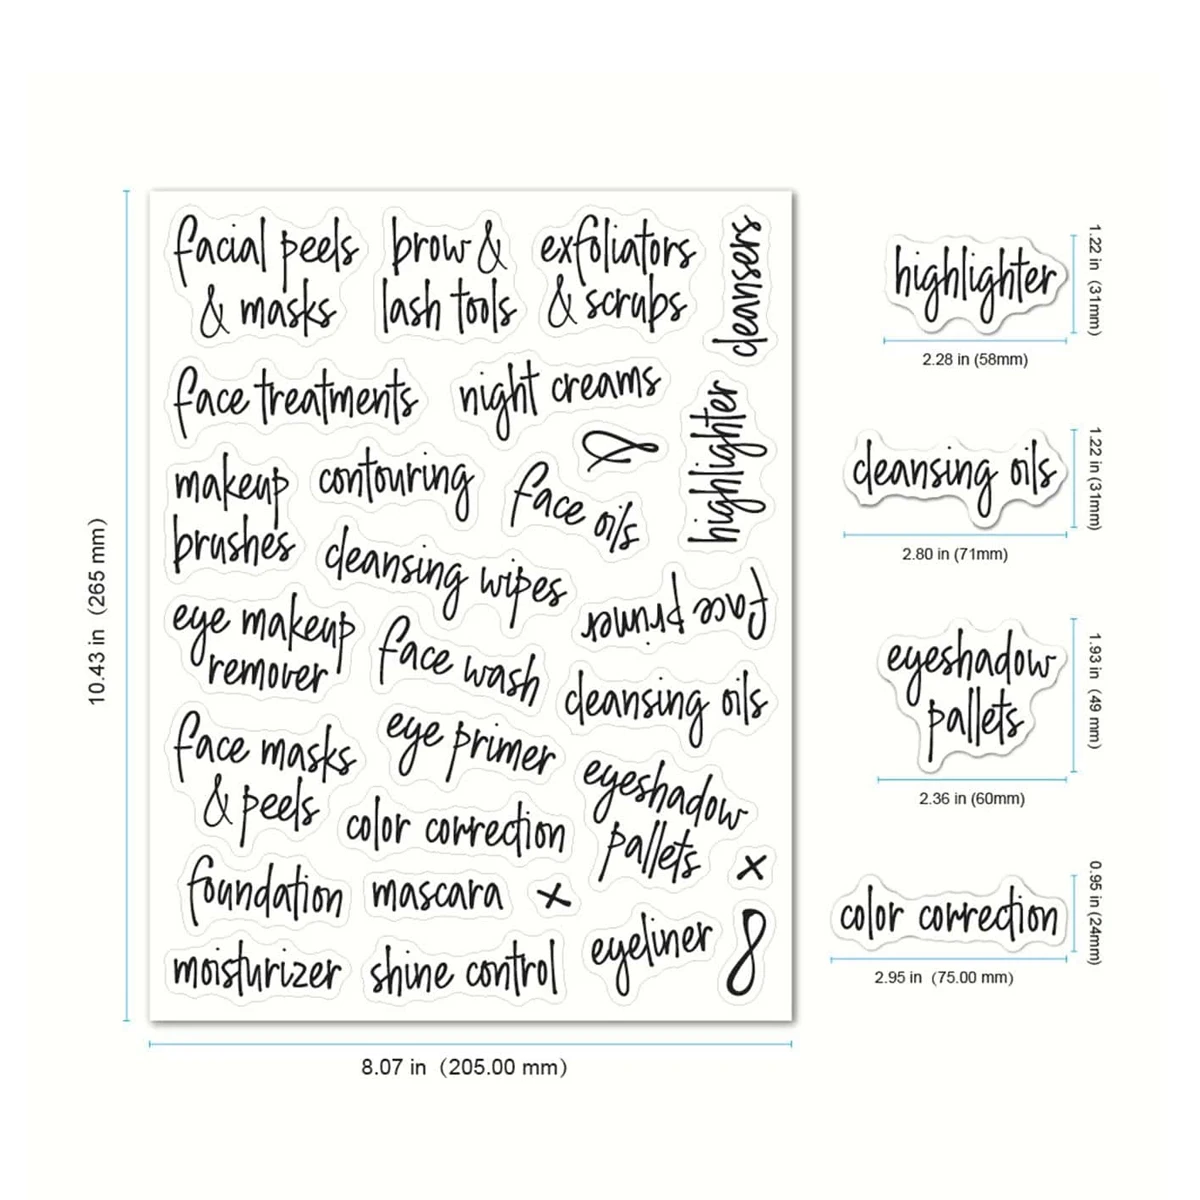 facial peels
& masks
brow &
lash tools
exfoliators
& scrubs
cleansers
face treatments
night creams
&
highlighter
makeup
brushes
contouring
face oils
cleansing wipes
face primer
eye makeup
remover
face wash
cleansing oils
face masks
& peels
eye primer
eyeshadow
pallets
color correction
x
foundation
mascara
x
eyeliner
&
moisturizer
shine control
10.43 in (265 mm)
8.07 in (205.00 mm)
highlighter
1.22 in (31mm)
2.28 in (58mm)
cleansing oils
1.22 in (31mm)
2.80 in (71mm)
eyeshadow
pallets
1.93 in (49 mm)
2.36 in (60mm)
color correction
0.95 in (24mm)
2.95 in (75.00 mm)